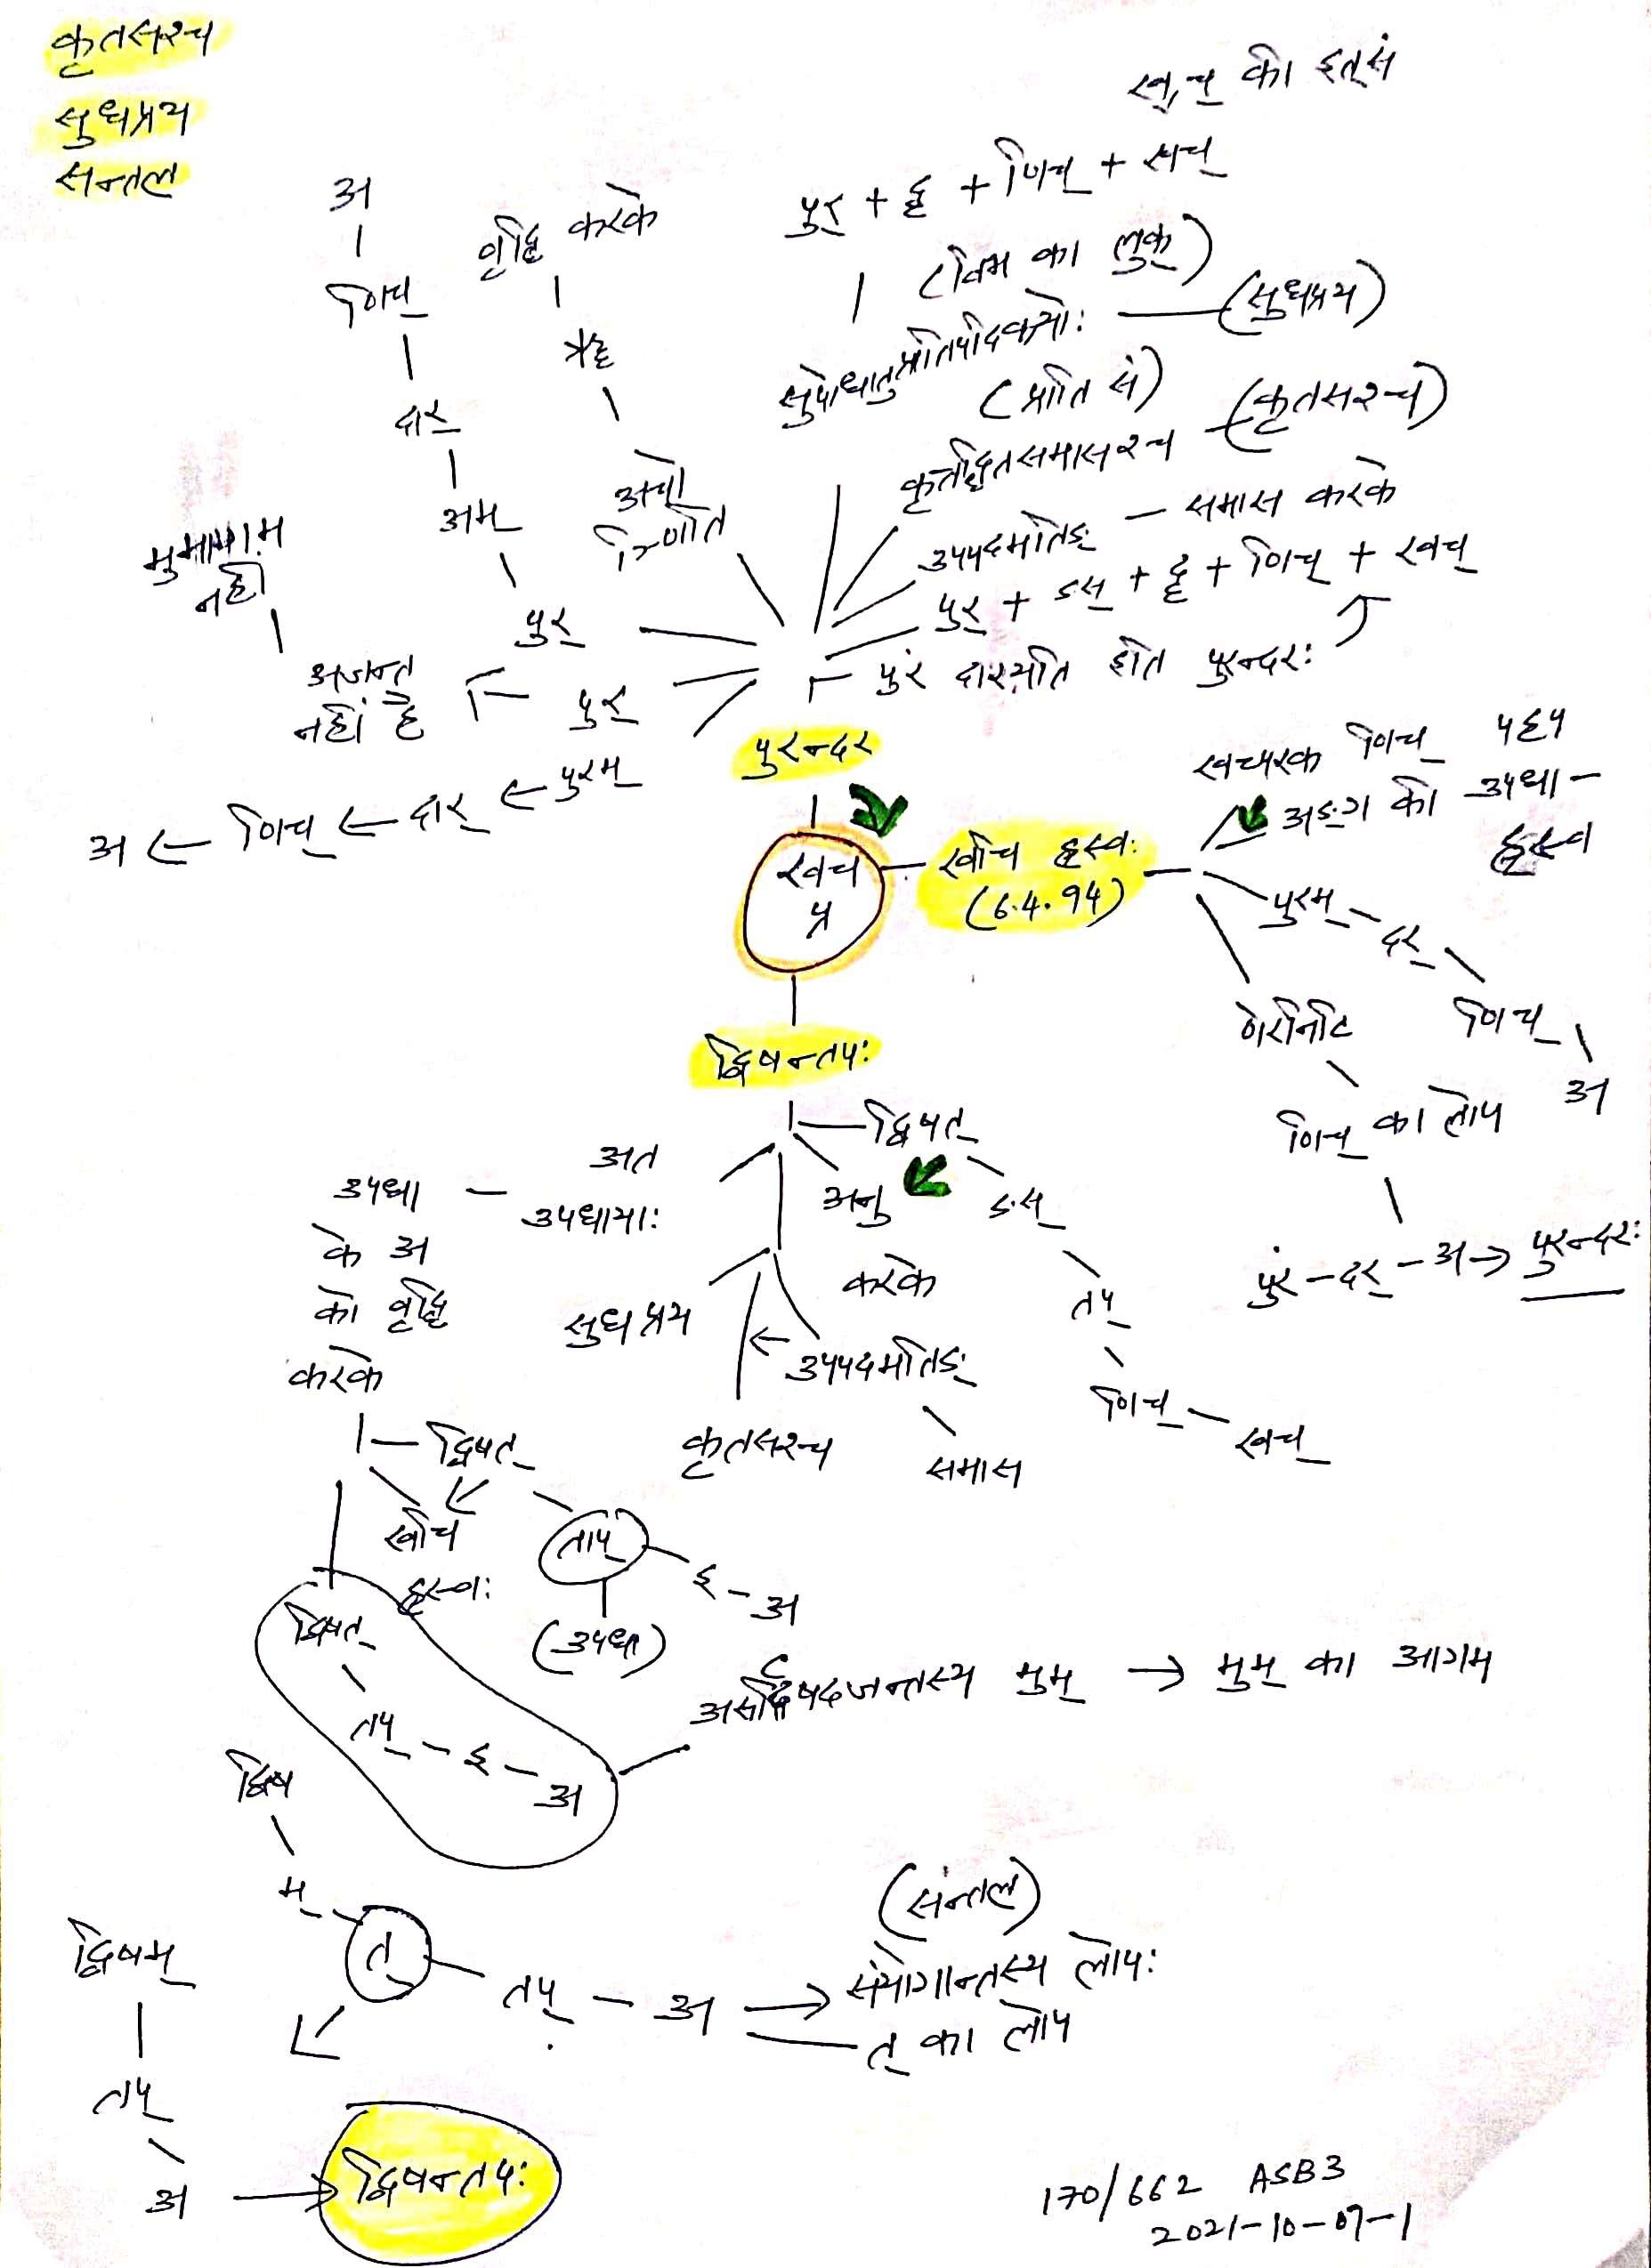 कृतसस्य
सुधप्रय
सन्तल
ख्, च् की इत्सं
पुर् + दृ + णिच् + खच्
(विभ का लुक्)
सुपोधातुप्रातिपदिकयोः — (सुधप्रय)
(प्राति सं)
कृत्तद्धितसमासश्च — (कृतसस्य)
उपपदमतिङ् — समास करके
पुर् + ङस् + दृ + णिच् + खच्
पुरं दारयति इति पुरन्दरः
अ
णिच्
दार्
अम्
पुर्
वृद्धि करके
ऋ
अचो
ञ्णिति
मुमागम
नहीं
अजन्त
नहीं है
पुर्
अ ← णिच् ← दार् ← पुरम्
पुरन्दर
खच्
प्र
खचि ह्रस्वः
(6.4.94)
खच्परक णिच् परे
अङ्ग की उपधा –
ह्रस्व
पुरम् – दर्
णिच्
अ
णेरनिटि
णिच् का लोप
पुरं – दर् – अ → पुरन्दरः
द्विषन्तपः
द्विषत्
ङस्
तप्
णिच् – खच्
अनु
करके
उपपदमतिङ्
समास
कृतसस्य
सुधप्रय
अत
उपधायाः
उपधा
के अ
को वृद्धि
करके
द्विषत्
ताप्
(उपधा)
इ – अ
खचि
ह्रस्वः
द्विषत्
तप् – इ – अ
अरुर्द्विषदजन्तस्य मुम् → मुम् का आगम
द्विष
म्
त्
तप् – अ
(संन्तल)
संयोगान्तस्य लोपः
त् का लोप
द्विषम्
तप्
अ → द्विषन्तपः
170/662 ASB3
2021-10-07-1